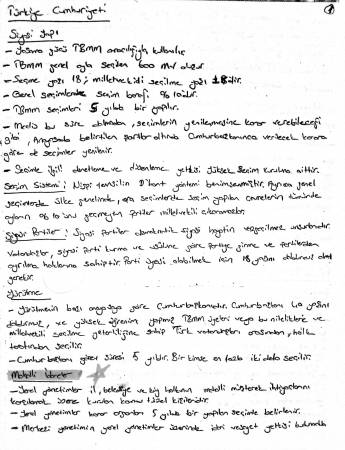 Türkiye Cumhuriyeti
Siyasi Yapı
- Yasama gücü TBMM aracılığıyla kullanılır.
- TBMM genel oyla seçilen 600 Mv oluşur
- Seçme yaşı 18; milletvekili seçilme yaşı 18'dir.
- Genel seçimlerde seçim barajı % 10'dur.
- TBMM seçimleri 5 yılda bir yapılır.
- Meclis bu süre dolmadan, seçimlerin yenilenmesine karar verebileceği
gibi, Anayasada belirtilen şartlar altında Cumhurbaşkanınca verilecek karara
göre de seçimler yenilenir.
- Seçimle ilgili denetleme ve düzenleme yetkisi Yüksek Seçim Kuruluna aittir.
Seçim Sistemi: Nispi temsilin D'hont yöntemi benimsenmiştir. Ayrıca genel
seçimlerde ülke genelinde, ara seçimlerde seçim yapılan çevrelerin tümünde
oyların % 10'unu geçmeyen partiler milletvekili çıkaramazlar.
Siyasi Partiler: Siyasi partiler demokratik siyasi hayatın vazgeçilmez unsurlarıdır.
Vatandaşlar, siyasi parti kurma ve usulüne göre partilere girme ve partilerden
ayrılma haklarına sahiptir. Parti üyesi olabilmek için 18 yaşını doldurmuş olmak
gerekir.
Yürütme
- Yürütmenin başı anayasaya göre Cumhurbaşkanıdır. Cumhurbaşkanı 40 yaşını
doldurmuş, ve yüksek öğrenim yapmış TBMM üyeleri veya bu niteliklere ve
milletvekili seçilme yeterliliğine sahip Türk vatandaşları arasından, halk
tarafından seçilir.
- Cumhurbaşkanın görev süresi 5 yıldır. Bir kimse en fazla iki defa seçilir.
Mahalli İdareler
- Yerel yönetimler il, belediye ve köy halkının mahalli müşterek ihtiyaçlarını
karşılamak üzere kurulan kamu tüzel kişileridir.
- Yerel yönetimler karar organları 5 yılda bir yapılan seçimle belirlenir.
- Merkezi yönetimin yerel yönetimler üzerinde idari vesayet yetkisi bulunmakta